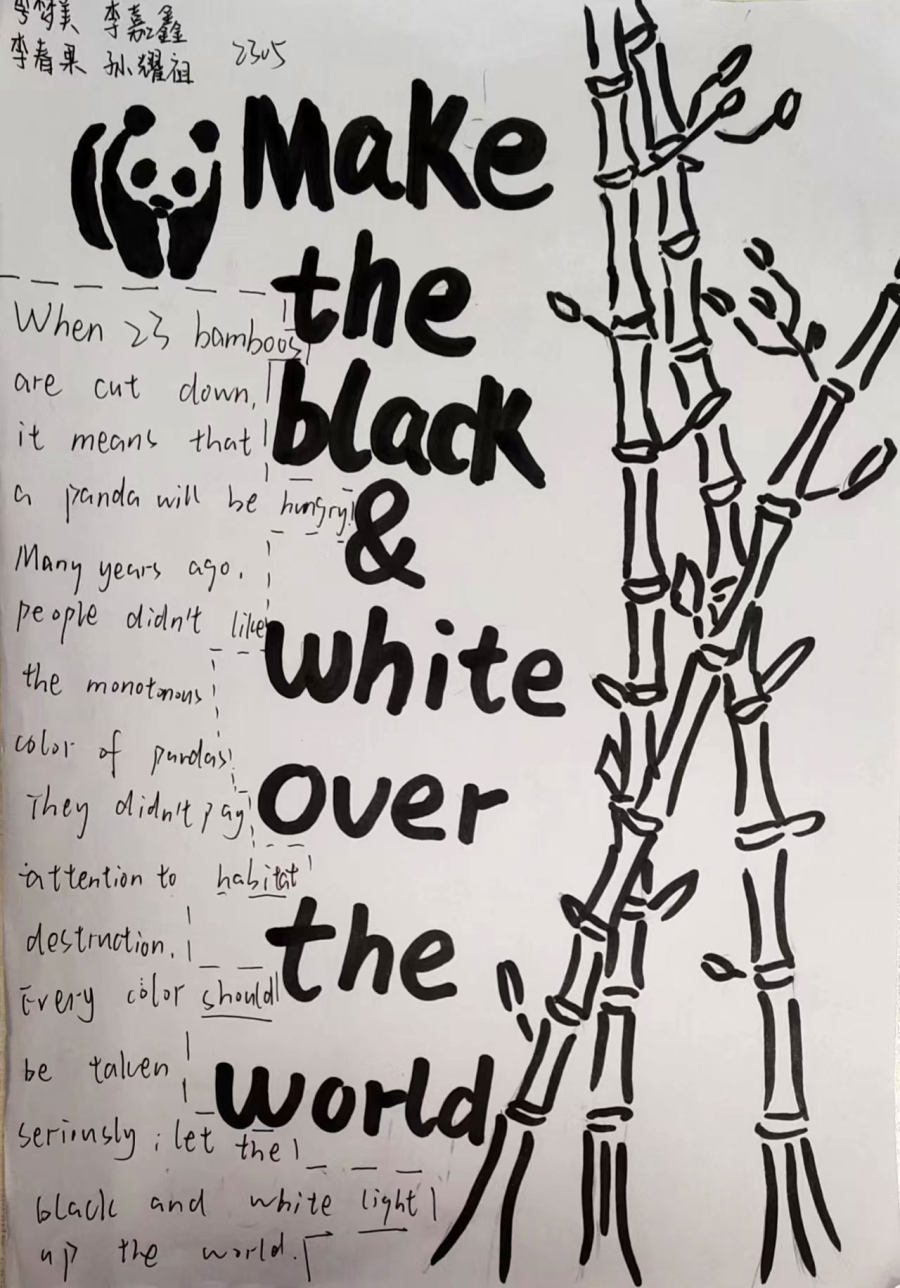 李嘉鑫
李春果 孙耀祖 2305
Make
the
black
&
white
over
the
world
When 23 bamboos
are cut down,
it means that
a panda will be hungry!
Many years ago,
people didn't like
the monotonous
color of pandas.
They didn't pay
attention to habitat
destruction.
Every color should
be taken
seriously; let the
black and white light
up the world.